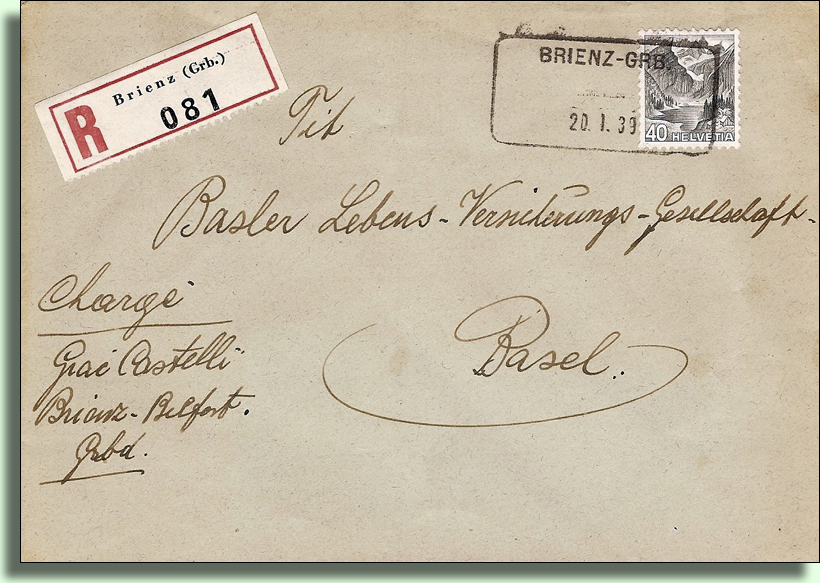 Brienz (Grb.)
R 081
BRIENZ-GRB.
20. I. 39
40 HELVETIA
Tit
Basler Lebens-Versicherungs-Gesellschaft-
Chargé
Basel.
Castelli
Brienz-Belfort.
Grbd.